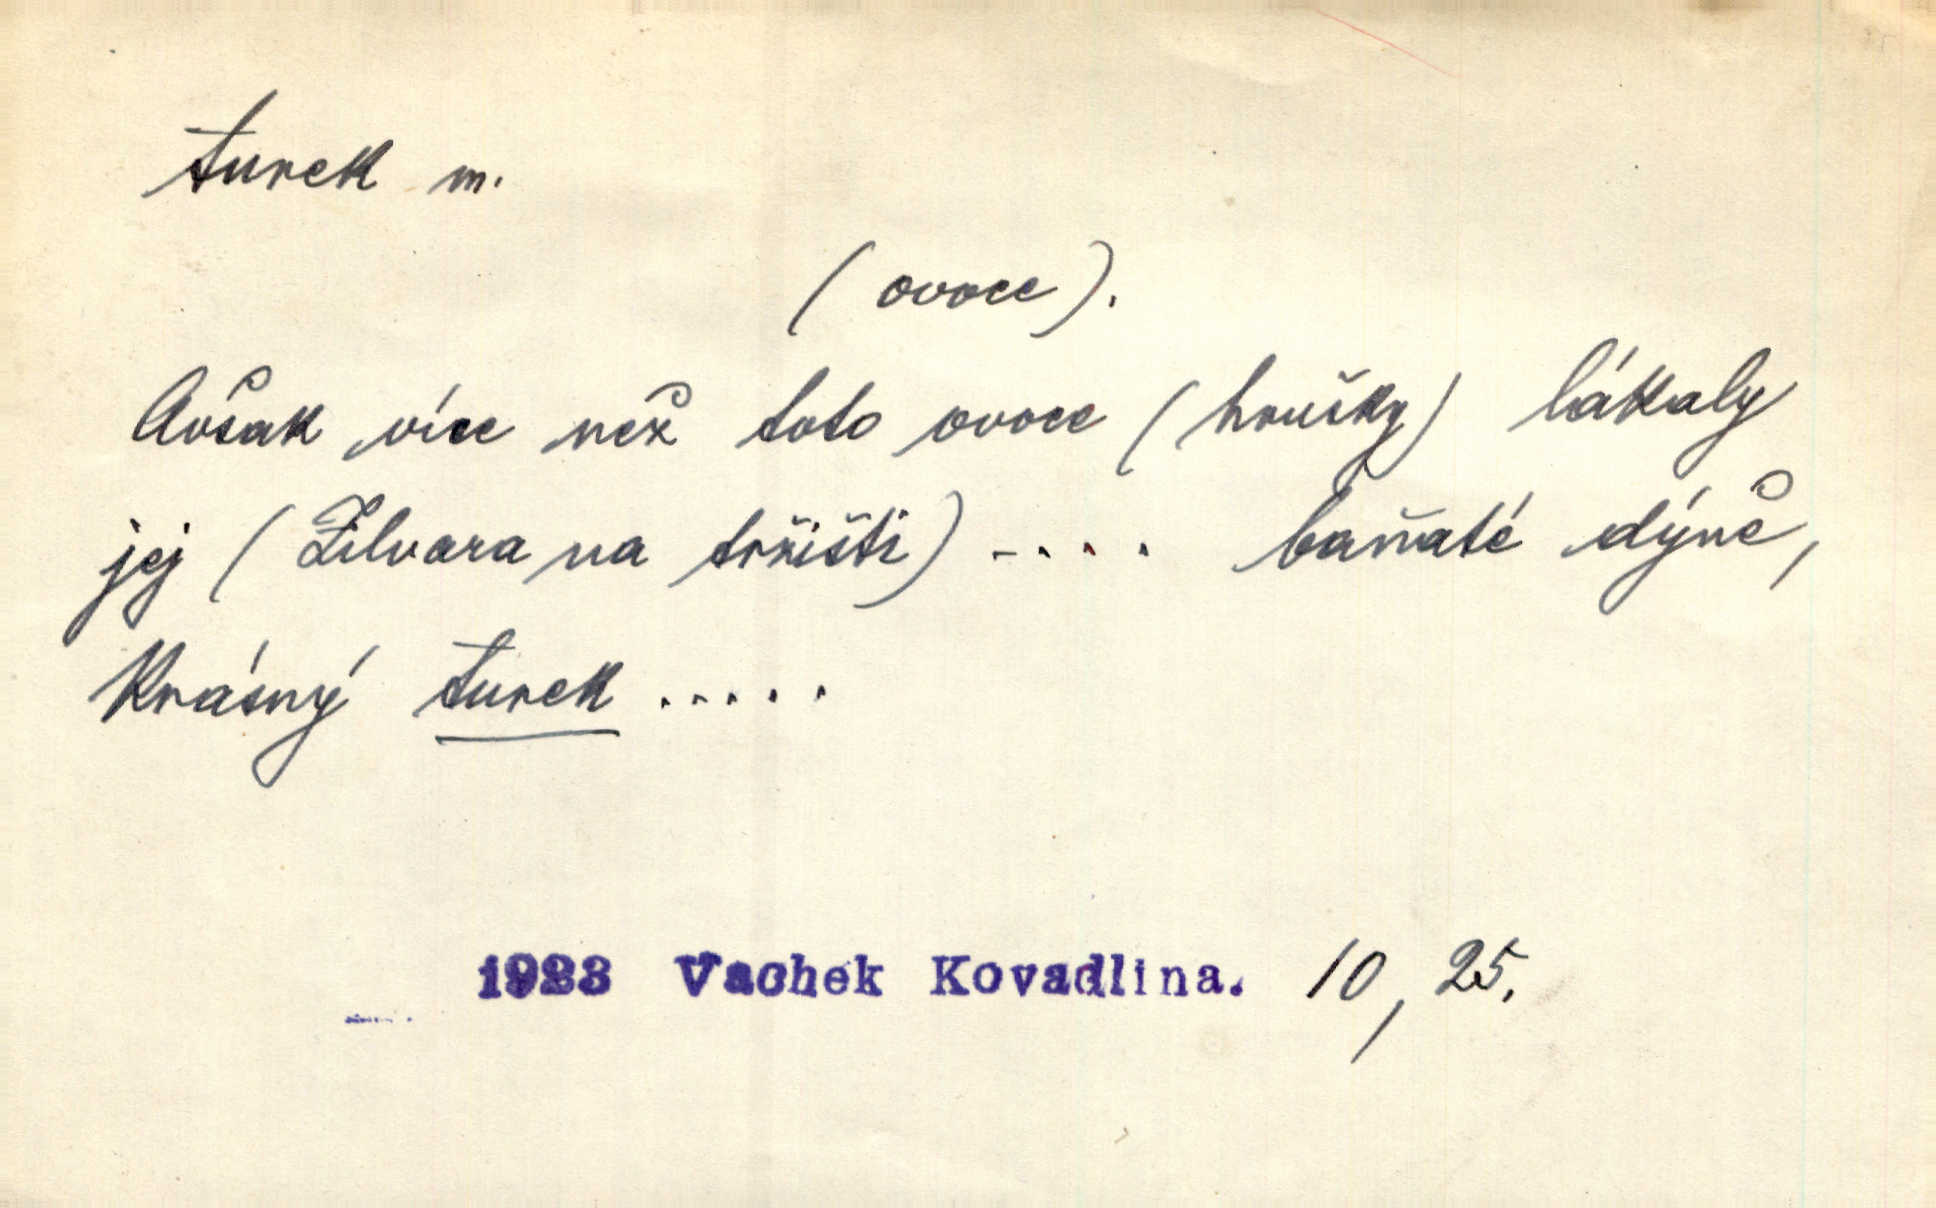 turek m.
(ovoce).
Avšak více než toto ovoce (hrušky) lákaly
jej (Žilvara na tržišti) ..... baňaté dýně,
Krásný turek .....
1923 Vachek Kovadlina. 10, 25.